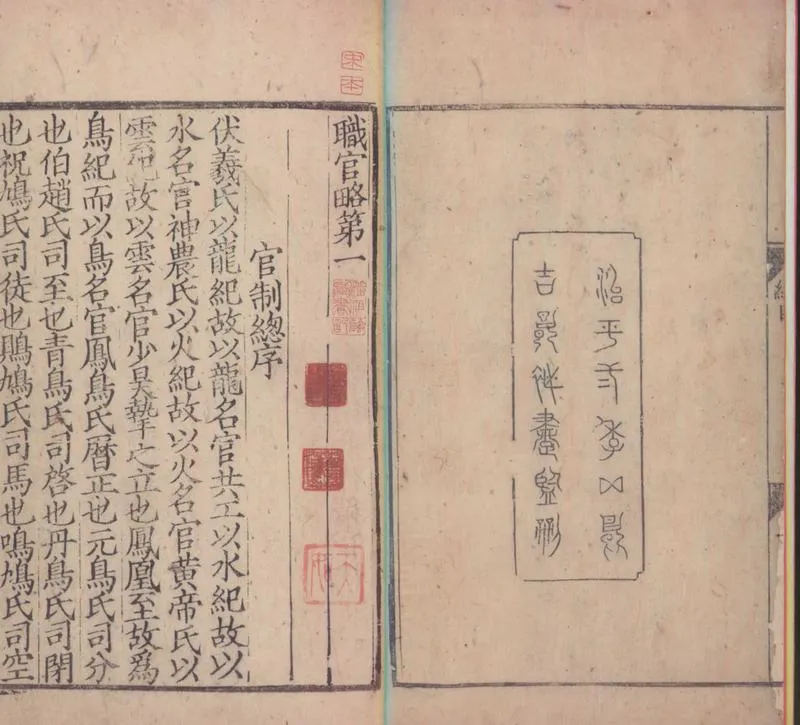 治平年
吉監
職官略第一
官制總序
伏羲氏以龍紀故以龍名官共工以水紀故以
水名官神農氏以火紀故以火名官黃帝氏以
雲紀故以雲名官少昊摯之立也鳳凰至故爲
鳥紀而以鳥名官鳳鳥氏曆正也元鳥氏司分
也伯趙氏司至也青鳥氏司啓也丹鳥氏司閉
也祝鳩氏司徒也鴡鳩氏司馬也鳴鳩氏司空